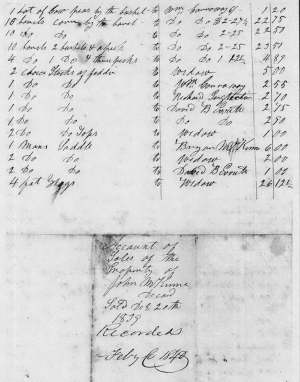 1 Lot of Cow peas by the basket to Wm Conaway 1 20
10 barrels corn by the barrel to Do Do 2-27½ 22 75
10 Do Do to Do Do 2-25 22 50
10 barrels 2 bushels & a peck to Do Do 2-25 23 50
4 Do 1 Do & three pecks to Do Do 1 22½ 4 89
2 choice Stacks of fodder to Widow 5 00
1 Do Do to Wm Conaway 2 55
1 Do Do to Richard 2 70
1 Do Do to David B 2 75
1 Do Do to Do 2 90
2 Do Do Tops to Widow 1 00
1 Mans Saddle to Bryan McKinne 6 00
2 Do Do to Widow 2 00
2 Do Do to David B 1 00
4 fat Hoggs to Widow 26 12½
Account of
Sales of the
Property of
John McKinne
Decd
Sold Dec 20th
1839
Recorded
Feby 1840